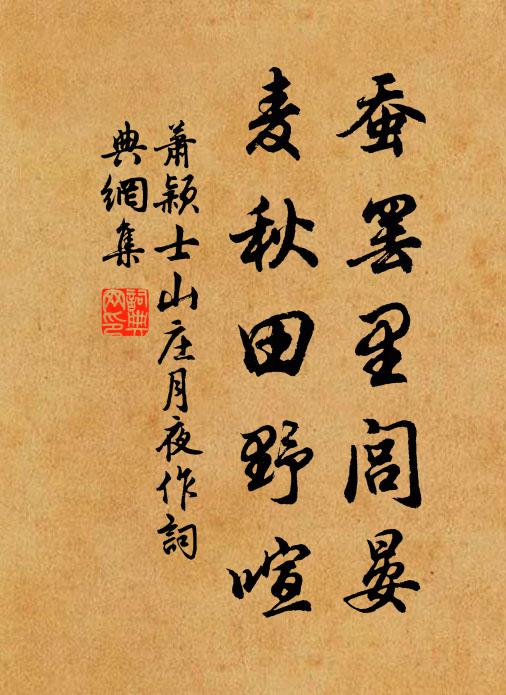 蚕罢里闾晏
麦秋田野喧
萧颖士山庄月夜作词
典網集
詞典網印